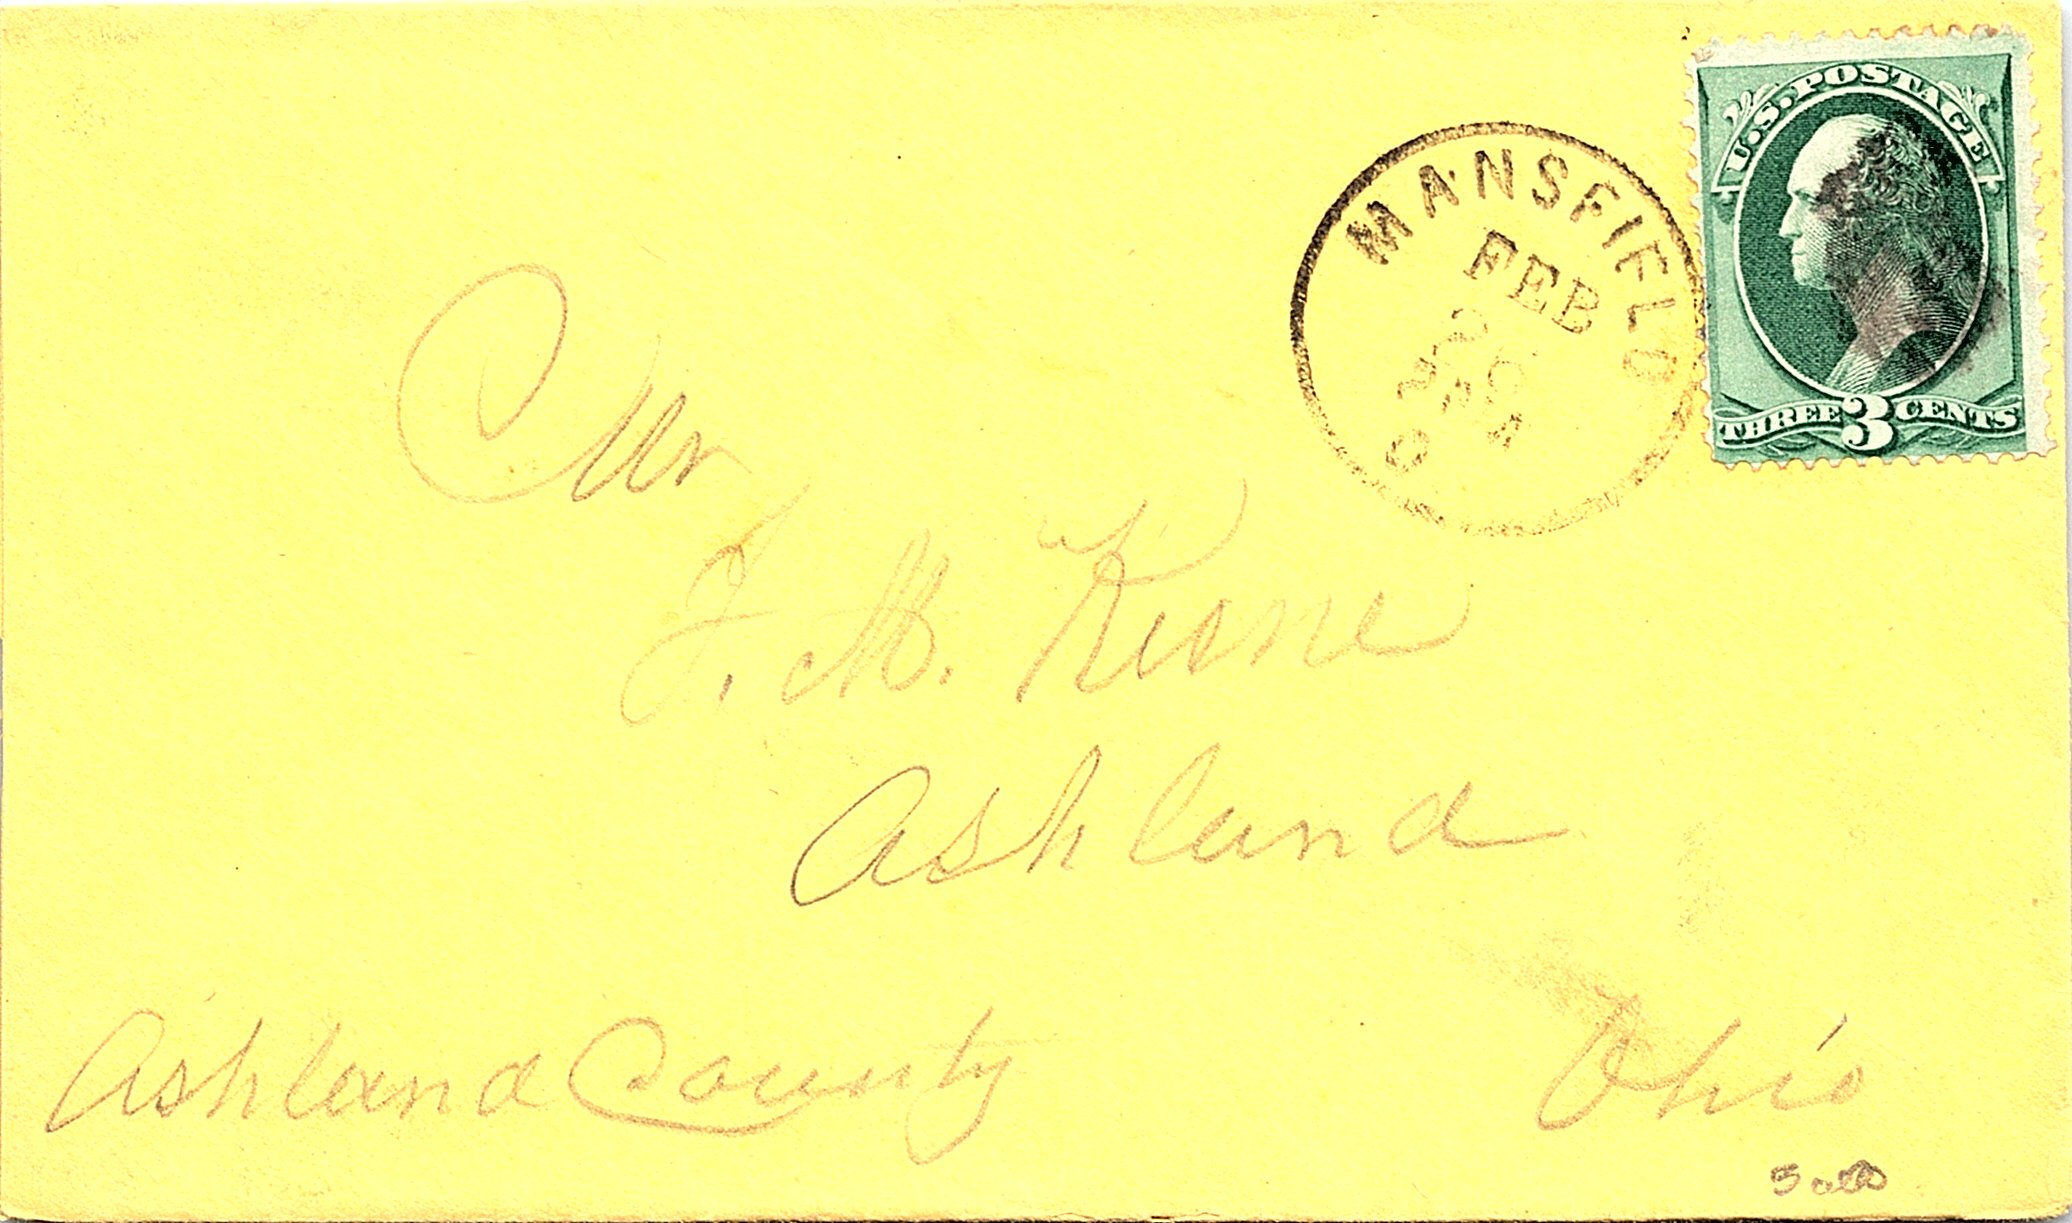 U.S. POSTAGE
THREE 3 CENTS
MANSFIELD
FEB
Mr
F. M. Keene
Ashland
Ashland County
Ohio